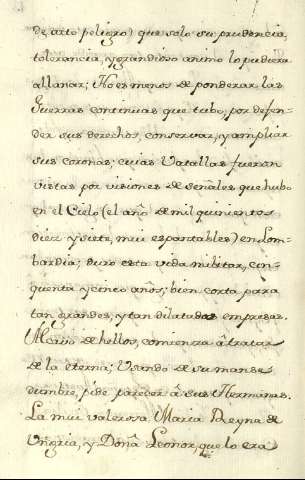 de arto peligro) que solo su prudencia,
tolerancia, y grandioso animo lo pudiera
allanar; No es menos de ponderar, las
Guerras continuas que tubo, por defen-
der sus derechos, conservar, y ampliar
sus coronas; cuias Vatallas fueron
vistas por visiones de señales que hubo
en el Cielo (el año de mil quinientos
diez y siete, mui espantables) en Lom-
bardia; duro esta vida militar, cin-
quenta y cinco años; bien corta para
tan grandes, y tan dilatadas empresas.
de hellos, comienza â tratar
de la eterna; Usando de su manse-
dumbre, pide parecer â sus Hermanas.
La mui valerosa Maria Reyna de
Vngria, y Doña Leonor, que lo era